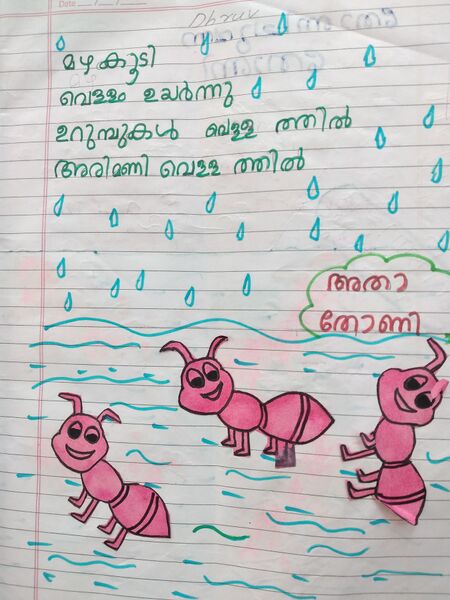 Date
Dhruv
മഴ കൂടി
വെള്ളം ഉയർന്നു
ഉറുമ്പുകൾ വെള്ള ത്തിൽ
അരിമണി വെള്ള ത്തിൽ
അതാ
തോണി